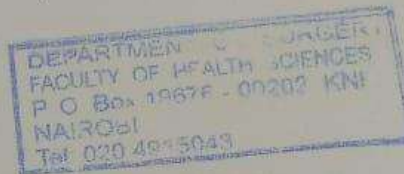 DEPARTMEN
FACULTY OF HEALTH SCIENCES
P O Box 19676 - 00202 KNH
NAIROBI
Tel 020 4915043